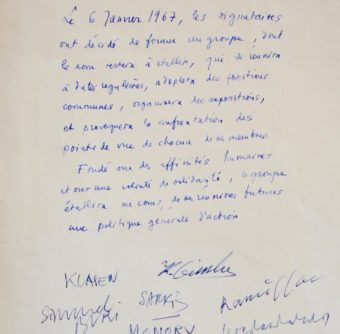 Le 6 Janvier 1967, les signataires
ont décidé de former un groupe, dont
le nom restera à établir, qui se réunira
à dates régulières, adoptera des positions
communes, organisera des expositions,
et provoquera la confrontation des
points de vue de chacun de ses membres
Fondé sur des affinités humaines
et sur une volonté de solidarité, le groupe
établira au cours de ses réunions futures
une politique générale d'action
KLASEN
SARKIS
MONORY